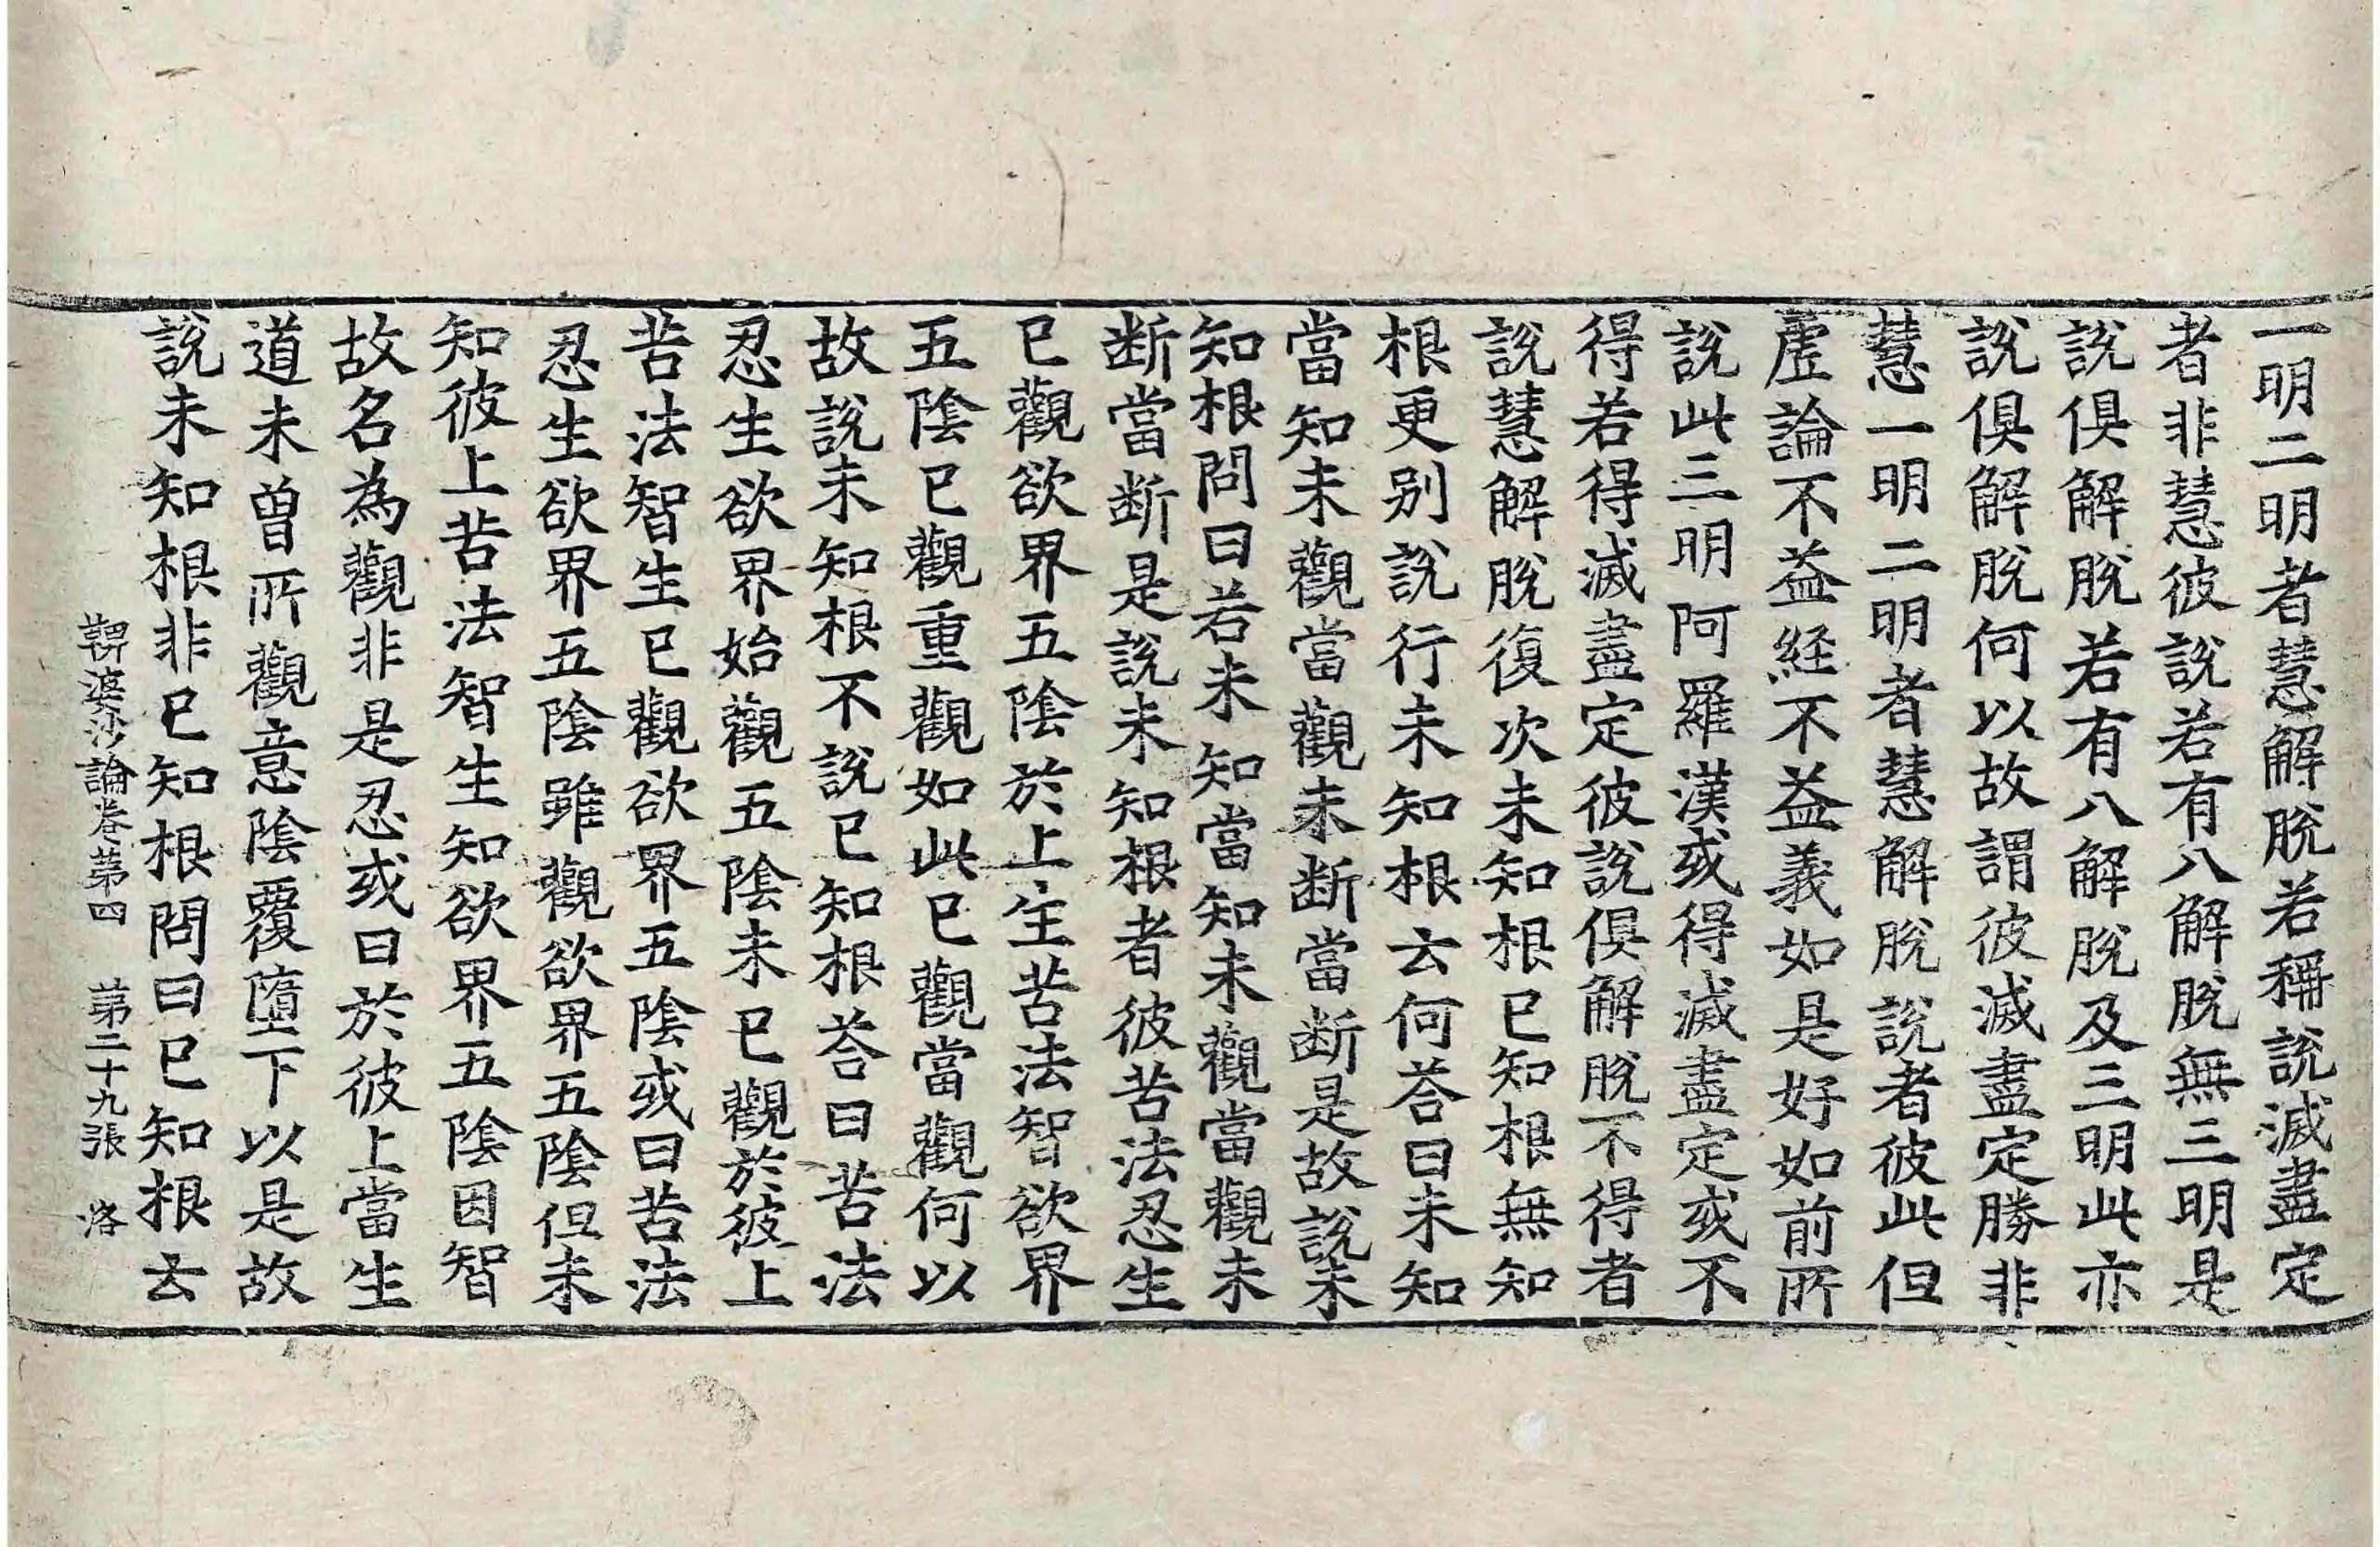 一明二明者慧解脫若稱說滅盡定
者非慧彼說若有八解脫無三明是
說俱解脫若有八解脫及三明此亦
說俱解脫何以故謂彼滅盡定勝非
慧一明二明者慧解脫說者彼此但
虛論不益經不益義如是好如前所
說此三明阿羅漢或得滅盡定或不
得若得滅盡定彼說俱解脫不得者
說慧解脫復次未知根已知根無知
根更別說行未知根云何荅曰未知
當知未觀當觀未断當断是故說未
知根問曰若未知當知未觀當觀未
断當断是說未知根者彼苦法忍生
已觀欲界五陰於上生苦法智欲界
五陰已觀重觀如此已觀當觀何以
故說未知根不說已知根荅曰苦法
忍生欲界始觀五陰未已觀於彼上
苦法智生已觀欲界五陰或曰苦法
忍生欲界五陰雖觀欲界五陰但未
知彼上苦法智生知欲界五陰因智
故名為觀非是忍或曰於彼上當生
道未曾所觀意陰覆墮下以是故
說未知根非已知根問曰已知根云
鞞婆沙論卷第四 第二十九張 洛